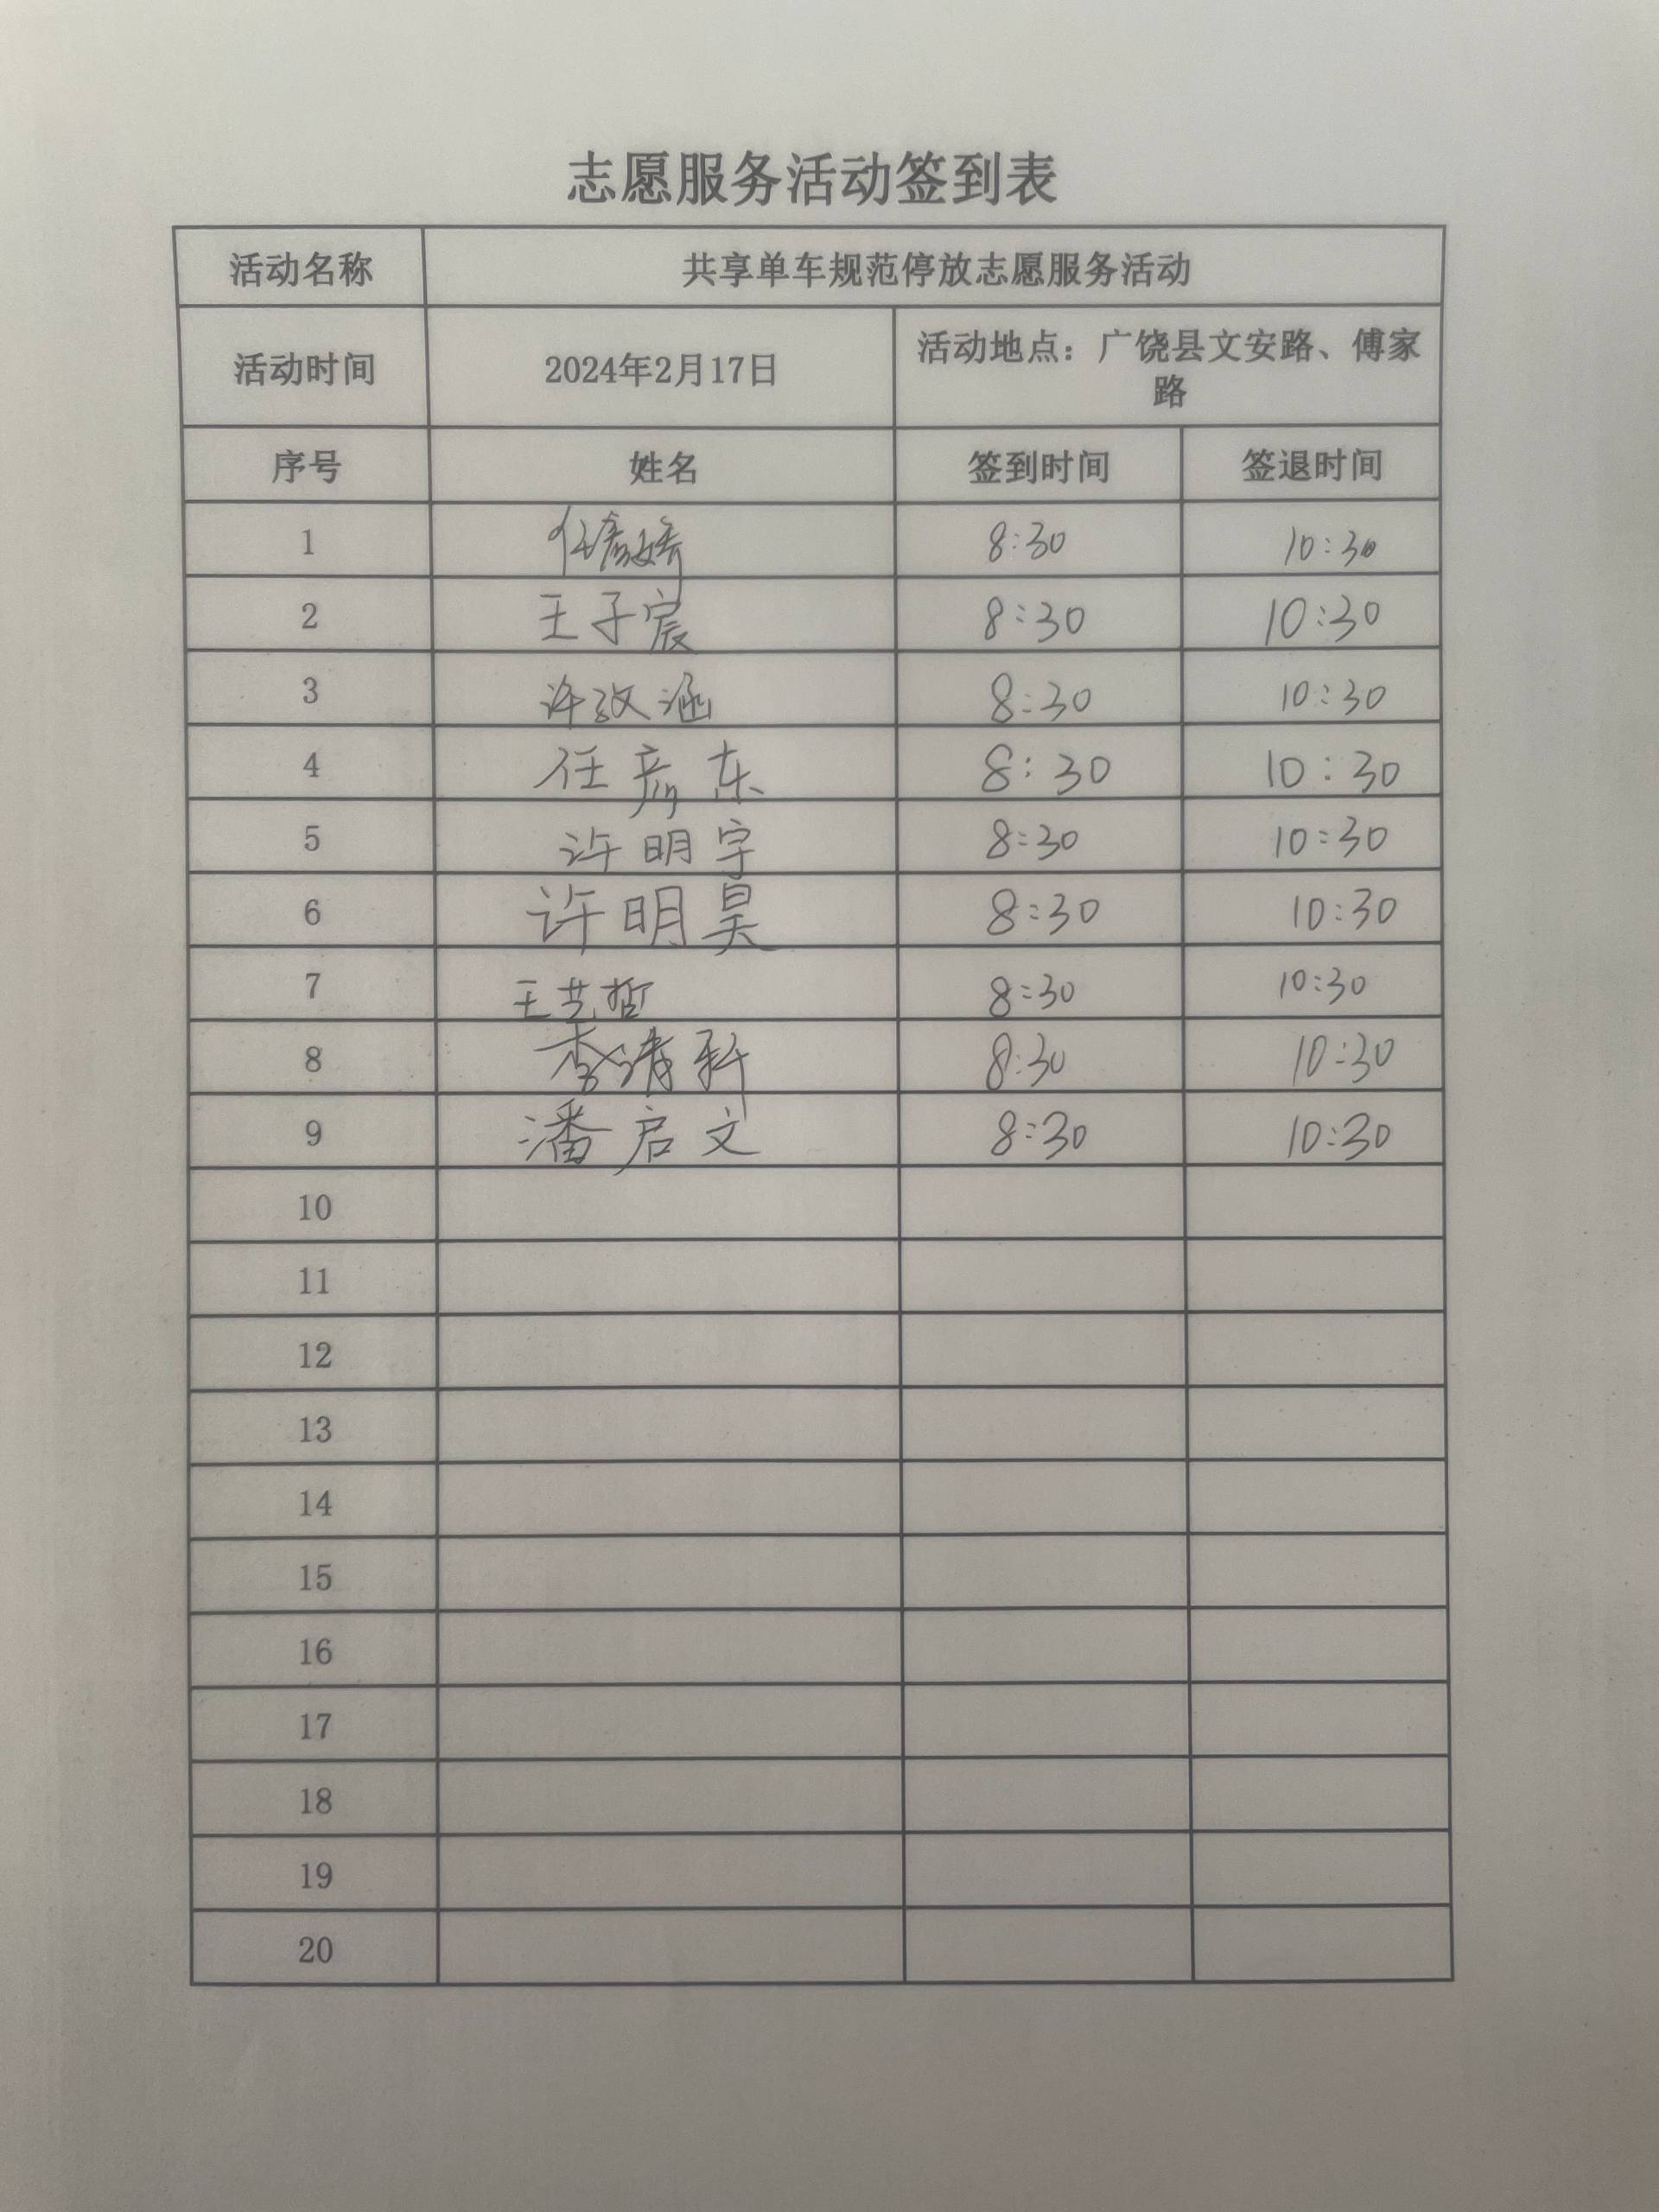 志愿服务活动签到表
活动名称 共享单车规范停放志愿服务活动
活动时间 2024年2月17日 活动地点：广饶县文安路、傅家
路
序号 姓名 签到时间 签退时间
1 任彦娇 8:30 10:30
2 王子宸 8:30 10:30
3 许孜涵 8:30 10:30
4 任彦东 8:30 10:30
5 许明宇 8:30 10:30
6 许明昊 8:30 10:30
7 王艺哲 8:30 10:30
8 李靖轩 8:30 10:30
9 潘启文 8:30 10:30
10
11
12
13
14
15
16
17
18
19
20